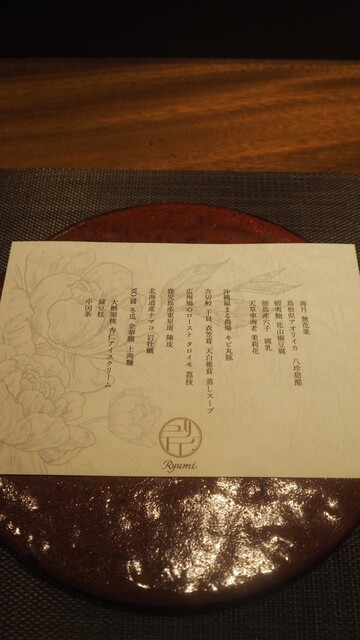 海月 無花果
島根県アオリイカ 八珍甜醋
蝦夷鮑 花山椒豆腐
徳島産穴子 腐乳
天草車海老 茉莉花
沖縄福まる農場 キビ丸豚
吉切鮫 干貝 衣笠茸 天白椎茸 蒸しスープ
広州鳩のロースト タロイモ 茘枝
鹿児島産東星斑 陳皮
北海道産ナマコ 岩牡蠣
XO醤 冬瓜 金華龍 上海麺
大糖領桃 杏仁アイスクリーム
緑豆糕
中国茶
Ryumi